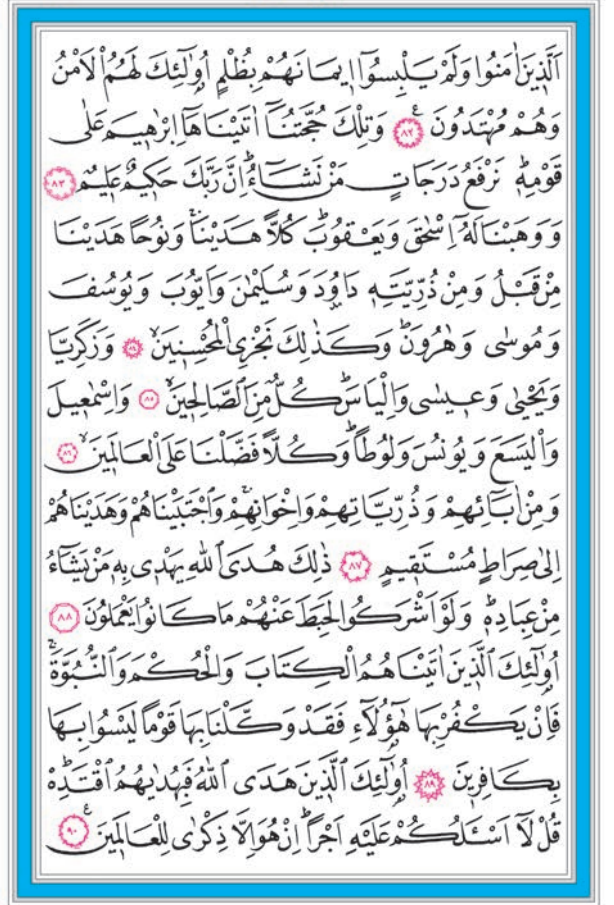 اَلَّذ۪ينَ اٰمَنُوا وَلَمْ يَلْبِسُٓوا ا۪يمَانَهُمْ بِظُلْمٍ اُو۬لٰٓئِكَ لَهُمُ الْاَمْنُ
وَهُمْ مُهْتَدُونَ۟ ﴿٨٢﴾ وَتِلْكَ حُجَّتُنَٓا اٰتَيْنَاهَٓا اِبْرٰه۪يمَ عَلٰى
قَوْمِه۪ۜ نَرْفَعُ دَرَجَاتٍ مَنْ نَشَٓاءُۜ اِنَّ رَبَّكَ حَك۪يمٌ عَل۪يمٌ ﴿٨٣﴾
وَوَهَبْنَا لَهُٓ اِسْحٰقَ وَيَعْقُوبَۜ كُلًّا هَدَيْنَاۚ وَنُوحًا هَدَيْنَا
مِنْ قَبْلُ وَمِنْ ذُرِّيَّتِه۪ دَاوُ۫دَ وَسُلَيْمٰنَ وَاَيُّوبَ وَيُوسُفَ
وَمُوسٰى وَهٰرُونَۜ وَكَذٰلِكَ نَجْزِي الْمُحْسِن۪ينَۙ ﴿٨٤﴾ وَزَكَرِيَّا
وَيَحْيٰى وَع۪يسٰى وَاِلْيَاسَۜ كُلٌّ مِنَ الصَّالِح۪ينَۙ ﴿٨٥﴾ وَاِسْمٰع۪يلَ
وَالْيَسَعَ وَيُونُسَ وَلُوطًاۜ وَكُلًّا فَضَّلْنَا عَلَى الْعَالَم۪ينَۙ ﴿٨٦﴾
وَمِنْ اٰبَٓائِهِمْ وَذُرِّيَّاتِهِمْ وَاِخْوَانِهِمْۚ وَاجْتَبَيْنَاهُمْ وَهَدَيْنَاهُمْ
اِلٰى صِرَاطٍ مُسْتَق۪يمٍ ﴿٨٧﴾ ذٰلِكَ هُدَى اللّٰهِ يَهْد۪ي بِه۪ مَنْ يَشَٓاءُ
مِنْ عِبَادِه۪ۜ وَلَوْ اَشْرَكُوا لَحَبِطَ عَنْهُمْ مَا كَانُوا يَعْمَلُونَ ﴿٨٨﴾
اُو۬لٰٓئِكَ الَّذ۪ينَ اٰتَيْنَاهُمُ الْكِتَابَ وَالْحُكْمَ وَالنُّبُوَّةَۚ
فَاِنْ يَكْفُرْ بِهَا هٰٓؤُ۬لَٓاءِ فَقَدْ وَكَّلْنَا بِهَا قَوْمًا لَيْسُوا بِهَا
بِكَافِر۪ينَ ﴿٨٩﴾ اُو۬لٰٓئِكَ الَّذ۪ينَ هَدَى اللّٰهُ فَبِهُدٰيهُمُ اقْتَدِهْۜ
قُلْ لَٓا اَسْـَٔلُكُمْ عَلَيْهِ اَجْرًاۜ اِنْ هُوَ اِلَّا ذِكْرٰى لِلْعَالَم۪ينَ۟ ﴿٩٠﴾